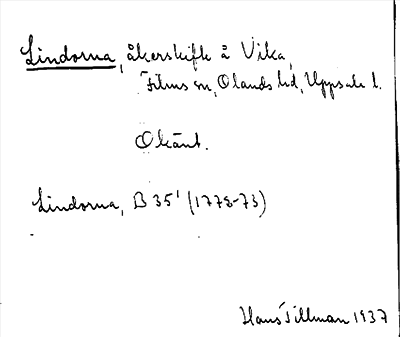 Lindorna, åkerskifte å Vika,
Films sn, Olands hd, Uppsala l.
Okänt.
Lindorna, B 35¹ (1773-73)
Hans Tillman 1937